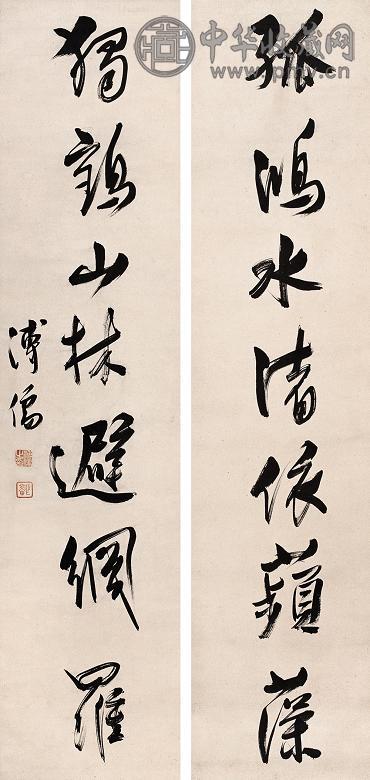 孤鴻水渚依蘋藻
獨鶴山林避網羅
溥儒
中华收藏网
www.pmy.cn